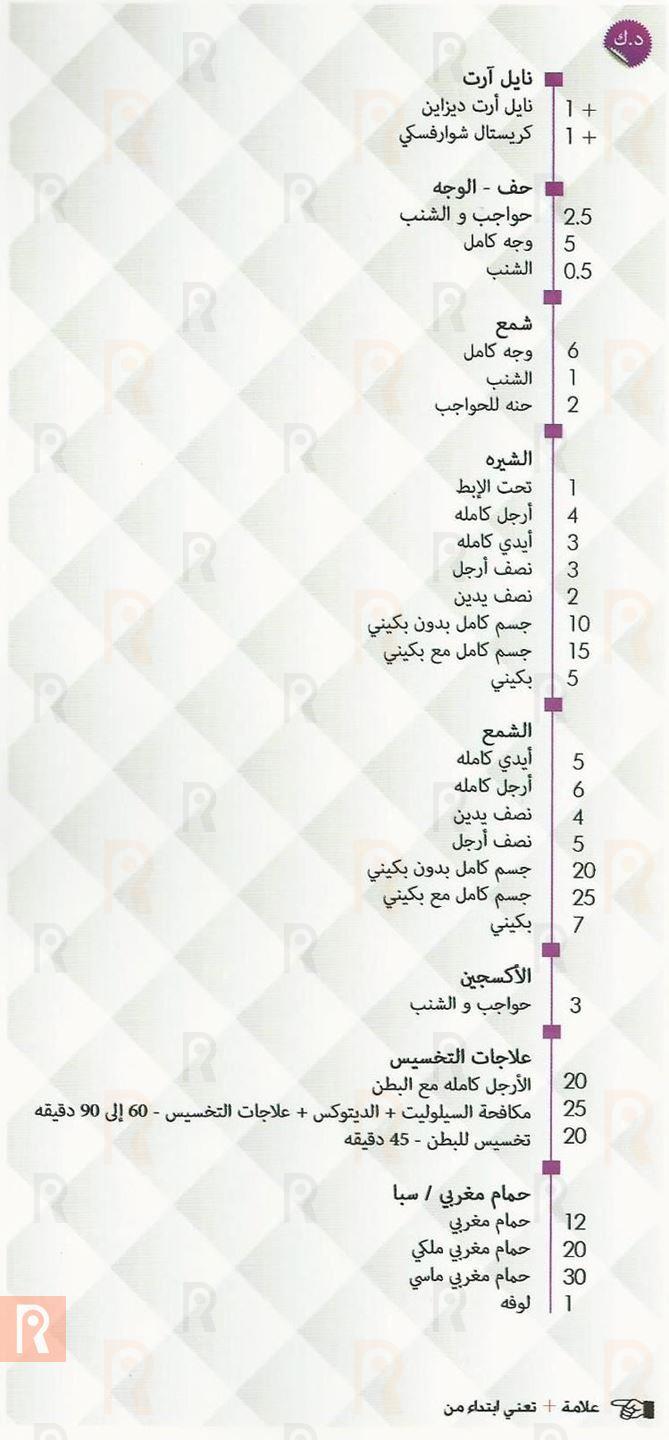 د.ك
نايل آرت
نايل أرت ديزاين 1 +
كريستال شوارفسكي 1 +
حف - الوجه
حواجب و الشنب 2.5
وجه كامل 5
الشنب 0.5
شمع
وجه كامل 6
الشنب 1
حنه للحواجب 2
الشيره
تحت الإبط 1
أرجل كامله 4
أيدي كامله 3
نصف أرجل 3
نصف يدين 2
جسم كامل بدون بكيني 10
جسم كامل مع بكيني 15
بكيني 5
الشمع
أيدي كامله 5
أرجل كامله 6
نصف يدين 4
نصف أرجل 5
جسم كامل بدون بكيني 20
جسم كامل مع بكيني 25
بكيني 7
الأكسجين
حواجب و الشنب 3
علاجات التخسيس
الأرجل كامله مع البطن 20
مكافحة السيلوليت + الديتوكس + علاجات التخسيس - 60 إلى 90 دقيقه 25
تخسيس للبطن - 45 دقيقه 20
حمام مغربي / سبا
حمام مغربي 12
حمام مغربي ملكي 20
حمام مغربي ماسي 30
لوفه 1
علامة + تعني ابتداء من